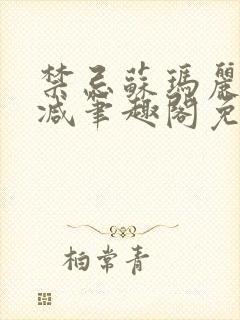 禁忌蘇瑪麗
減筆趣閣免
柏常青